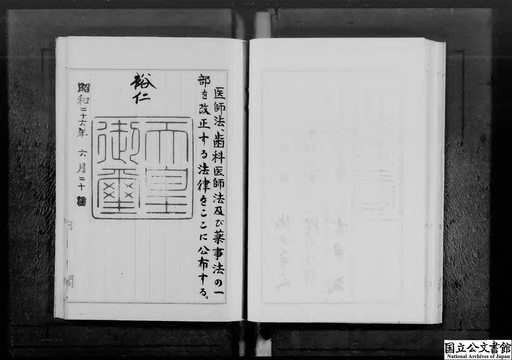 医師法、歯科医師法及び薬事法の一
部を改正する法律をここに公布する。
裕仁
天皇
御璽
昭和二十六年 六月二十
国立公文書館
National Archives of Japan